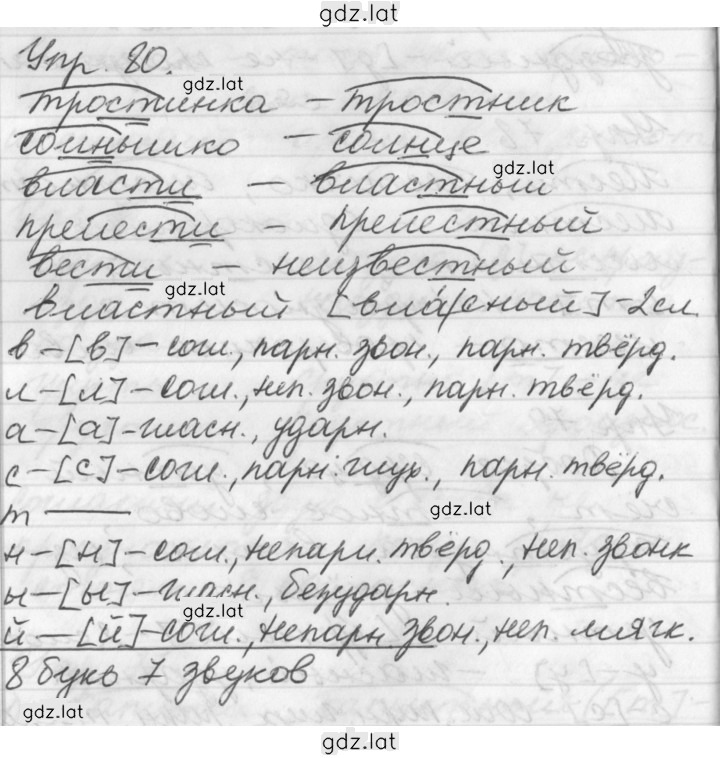 gdz.lat
Упр. 80.
gdz.lat
тростинка – тростник
солнышко – солнце
gdz.lat
власти – властный
прелести – прелестный
вести – неизвестный
gdz.lat
властный [вла́/сный] – 2 сл.
в – [в] – согл., парн. звон., парн. твёрд.
л – [л] – согл., неп. звон., парн. твёрд.
а – [а] – гласн., ударн.
с – [с] – согл., парн. глух., парн. твёрд.
т —— gdz.lat
н – [н] – согл., непарн. твёрд., неп. звонк
ы – [ы] – гласн., безударн.
gdz.lat
й – [й] – согл., непарн звон., неп. мягк.
8 букв 7 звуков
gdz.lat
gdz.lat